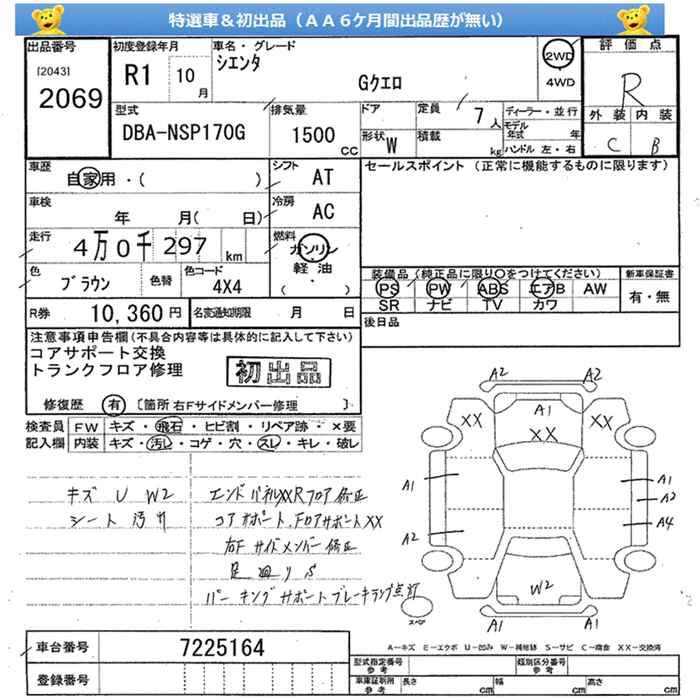 特選車＆初出品（ＡＡ６ケ月間出品歴が無い）
出品番号 初度登録年月 車名・グレード 評価点
[2043] R1 10月 シエンタ Gクエロ 2WD 4WD R
2069
型式 排気量 ドア 定員 7人 ディーラー・並行 外装 内装
DBA-NSP170G 1500 CC 形状 W 積載 kg モデル年式 年 ハンドル 左・右 C B
車歴 自家用・( ) シフト AT セールスポイント (正常に機能するものに限ります)
車検 年 月( 日) 冷房 AC
走行 4万0千297 km 燃料 ガソリン 軽油 ( ・ )
色 ブラウン 色替 色コード 4X4
装備品(純正品に限り○をつけてください) 新車保証書
PS PW ABS エアB AW 有・無
SR ナビ TV カワ
R券 10,360円 名変通知期限 月 日
後日品
注意事項申告欄(不具合内容等は具体的に記入して下さい)
コアサポート交換
トランクフロア修理
初出品
修復歴 有 [箇所 右Fサイドメンバー修理 ]
検査員記入欄 FW キズ・飛石・ヒビ割・リペア跡・×要
内装 キズ・汚レ・コゲ・穴・スレ・キレ・破レ
キズ U W2
シート 汚れ
エンドパネルXX Rフロア修正
コアサポート、Fロアサポート XX
右Fサイドメンバー修正
足廻りS
パーキングサポートブレーキランプ点灯
A2 A2
XX A1 XX
XX
A1 A1
A2
A2 A4
W2
スペア A1 A1
A－キズ E－エクボ U－凹み W－補修跡 S－サビ C－腐食 XX－交換済
車台番号 7225164
登録番号
型式指定番号 参考 類別区分番号 参考
車庫証明用 参考 長さ cm 幅 cm 高さ cm